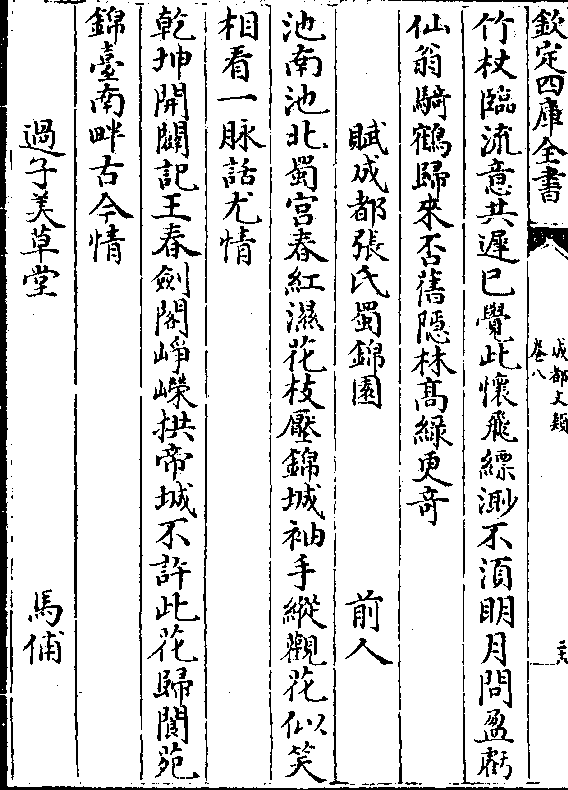 欽定四庫全書
成都文類
卷八
竹杖臨流意共遲已覺此懷飛縹渺不湏明月問盈虧
仙翁騎鶴歸來否舊隠林髙緑更竒
賦成都張氏蜀錦園 前人
池南池北蜀宫春紅濕花枝壓錦城袖手縱觀花似笑
相看一脉話尤情
乾坤開闢記王春劍閣崢嶸拱帝城不許此花歸閬苑
錦臺南畔古今情
過子美草堂 馬俌